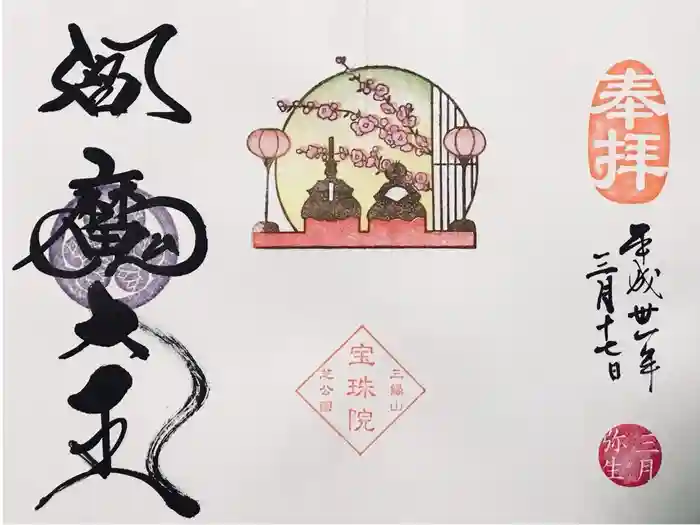 奉拝
平成卅一年
三月十七日
三月
弥生
三縁山
宝珠院
芝公園
閻魔大王